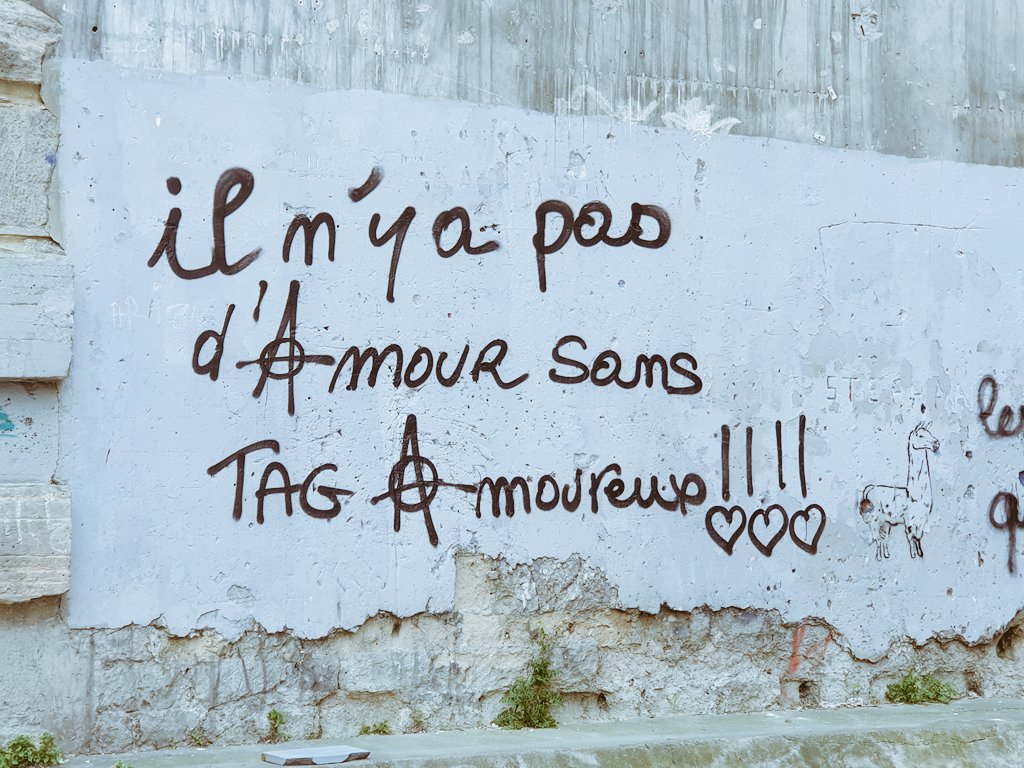 il n'y a pas
d'Amour sans
TAG Amoureux !!!!